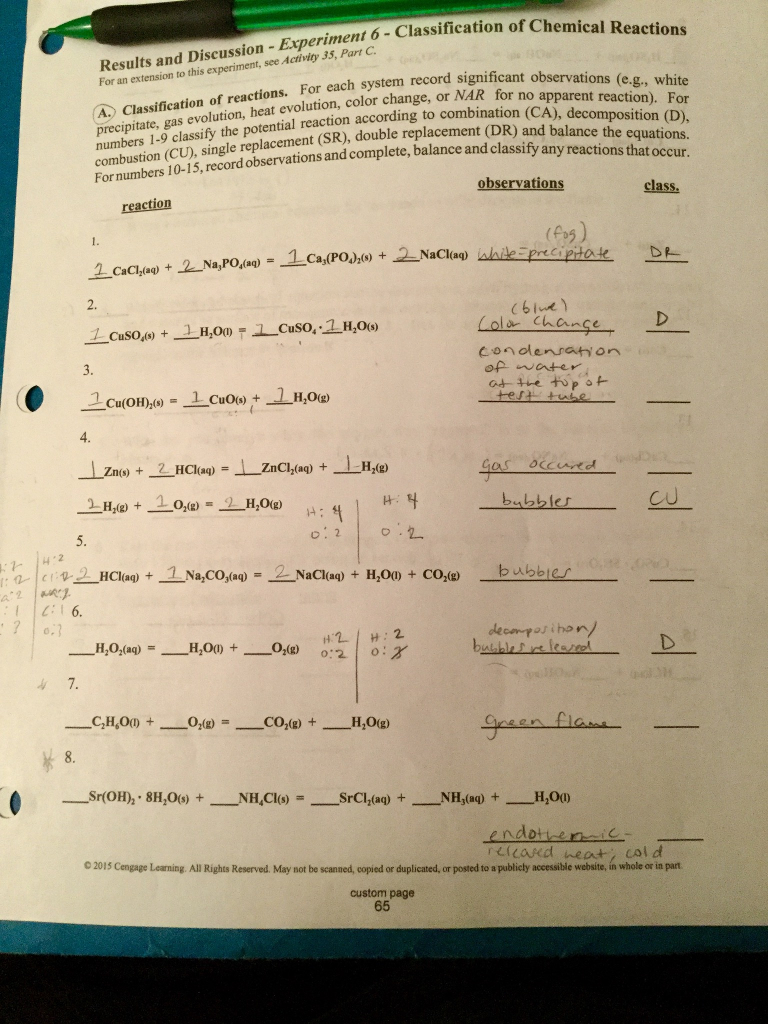 Results and Discussion - Experiment 6 - Classification of Chemical Reactions
For an extension to this experiment, see Activity 35, Part C.
A. Classification of reactions. For each system record significant observations (e.g., white
precipitate, gas evolution, heat evolution, color change, or NAR for no apparent reaction). For
numbers 1-9 classify the potential reaction according to combination (CA), decomposition (D),
combustion (CU), single replacement (SR), double replacement (DR) and balance the equations.
For numbers 10-15, record observations and complete, balance and classify any reactions that occur.
reaction observations class.
1.
(fog)
CaCl₂(aq) + 2 Na₃PO₄(aq) = 1 Ca₃(PO₄)₂(s) + 2 NaCl(aq) white-precipitate DR
2.
(blue)
1 CuSO₄(s) + 1 H₂O(l) = 1 CuSO₄·1 H₂O(s) Color Change D
3.
condensation
of water
at the top of
1 Cu(OH)₂(s) = 1 CuO(s) + 1 H₂O(g) test tube
4.
1 Zn(s) + 2 HCl(aq) = 1 ZnCl₂(aq) + 1 H₂(g) gas occured
2 H₂(g) + 1 O₂(g) = 2 H₂O(g) bubbles CU
H: 4 H: 4
O: 2 O: 2
5.
2 HCl(aq) + 1 Na₂CO₃(aq) = 2 NaCl(aq) + H₂O(l) + CO₂(g) bubbles
H:2
C:1
6.
decomposition/
H₂O₂(aq) = H₂O(l) + O₂(g) bubbles released D
H:2 H:2
O:2 O:
7.
C₂H₆O(l) + O₂(g) = CO₂(g) + H₂O(g) green flame
8.
Sr(OH)₂ · 8H₂O(s) + NH₄Cl(s) = SrCl₂(aq) + NH₃(aq) + H₂O(l)
endothermic-
released heat, cold
© 2015 Cengage Learning. All Rights Reserved. May not be scanned, copied or duplicated, or posted to a publicly accessible website, in whole or in part.
custom page
65